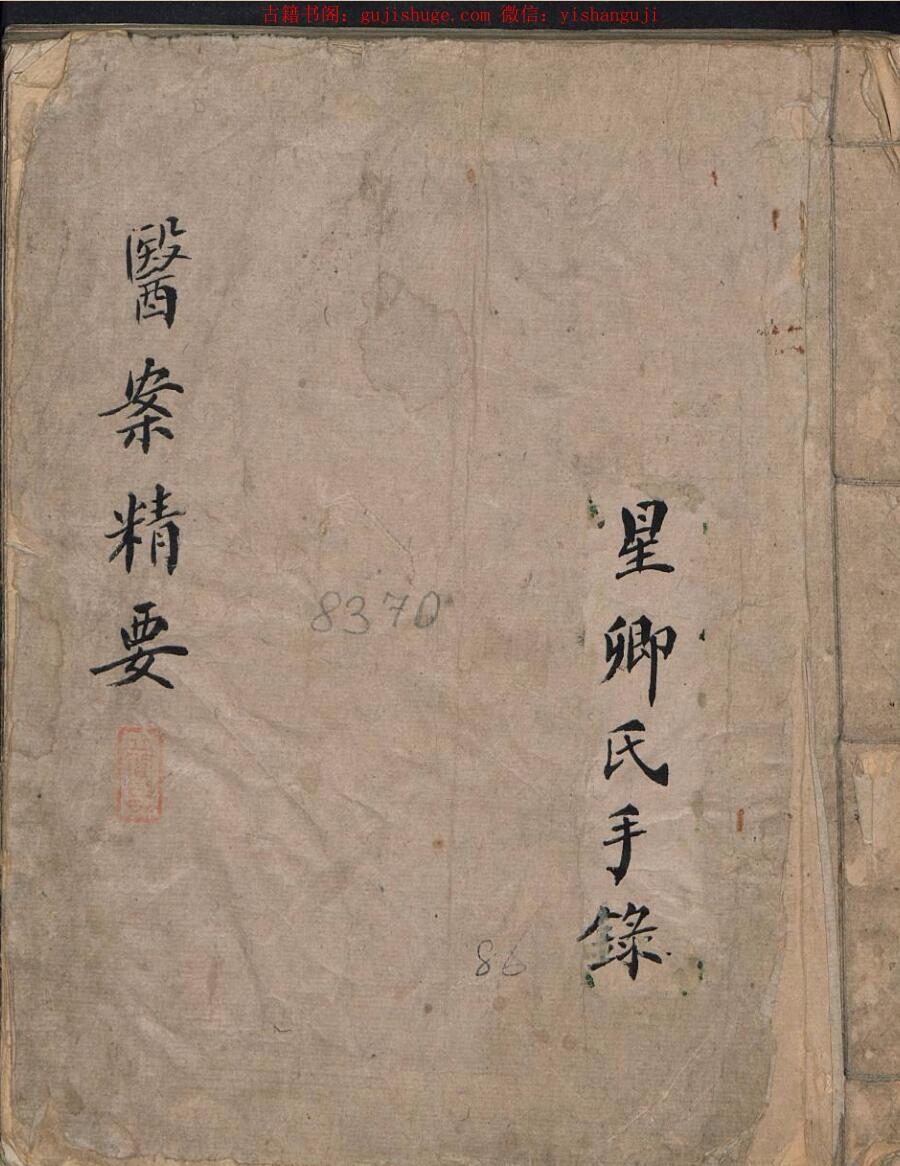 古籍书阁：gujishuge.com 微信：yishanguji
星卿氏手錄
醫案精要
8370
86